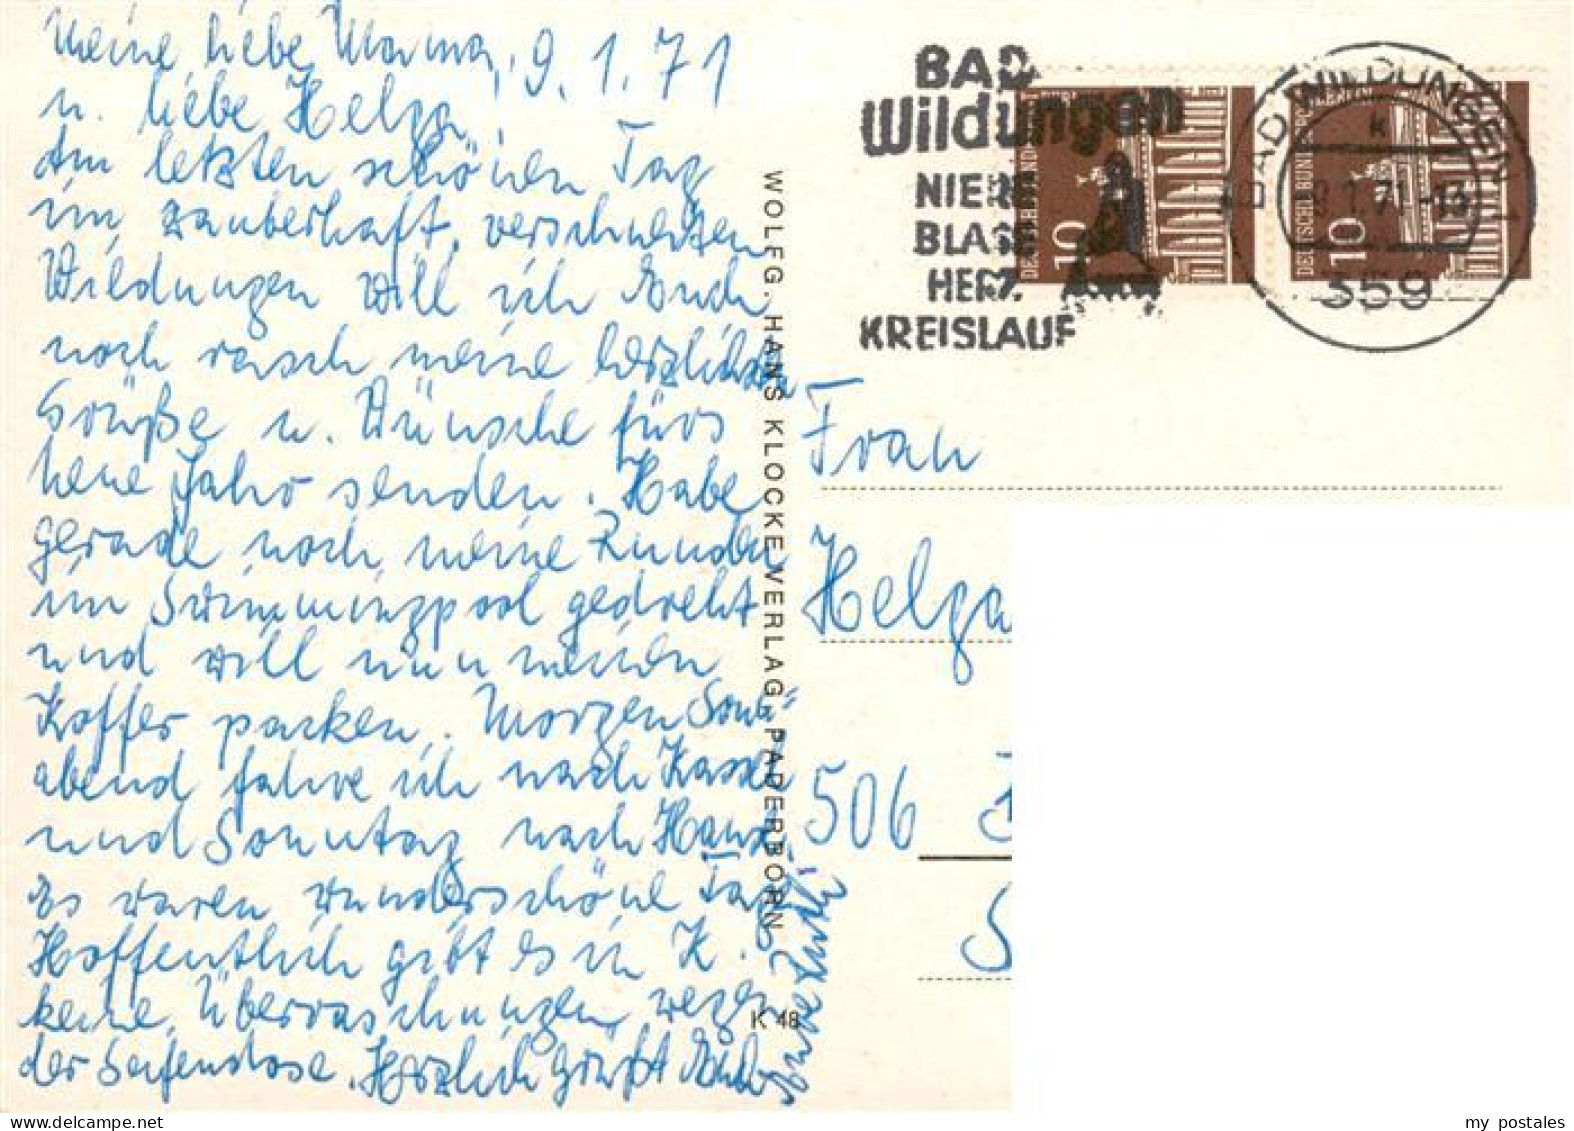 Meine liebe Mama, 9.1.71
u. liebe Helga,
Am letzten schönen Tag
im zauberhaft, verschneiten
Wildungen will ich Euch
noch rasch meine herzlichen
Grüße u. Wünsche fürs
neue Jahr senden. Habe
gerade noch meine Runden
im Swimmingpool gedreht
und will nun meinen
Koffer packen. Morgen Sonn-
abend fahre ich nach Kassel
und Sonntag nach Hause.
Es waren wunderschöne Tage
Hoffentlich gibt es in K.
keine Überraschungen, wegen
der Seifendose. Herzlich grüßt Euch
Eure
WOLFG. HANS KLOCKE VERLAG, PADERBORN
K 48
BAD
Wildungen
NIERE
BLASE
HERZ
KREISLAUF
DEUTSCHE BUNDESPOST
10
DEUTSCHE BUNDESPOST BERLIN
10
BAD WILDUNGEN 1
k
-9.1.71-13
359
Frau
Helga
506
S
my postales